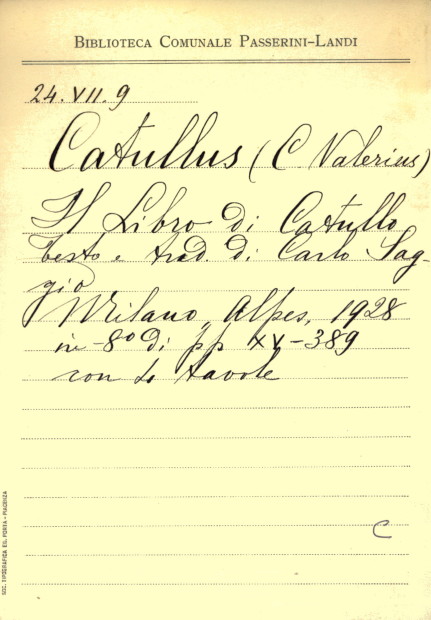 BIBLIOTECA COMUNALE PASSERINI-LANDI
24.VII.9
Catullus (C Valerius)
Il Libro di Catullo
testo e trad. di Carlo Sag-
gio
Milano, Alpes, 1928
in-8º di pp XV-389
con tavole
C
SOC. TIPOGRAFICA ED. PORTA - PIACENZA